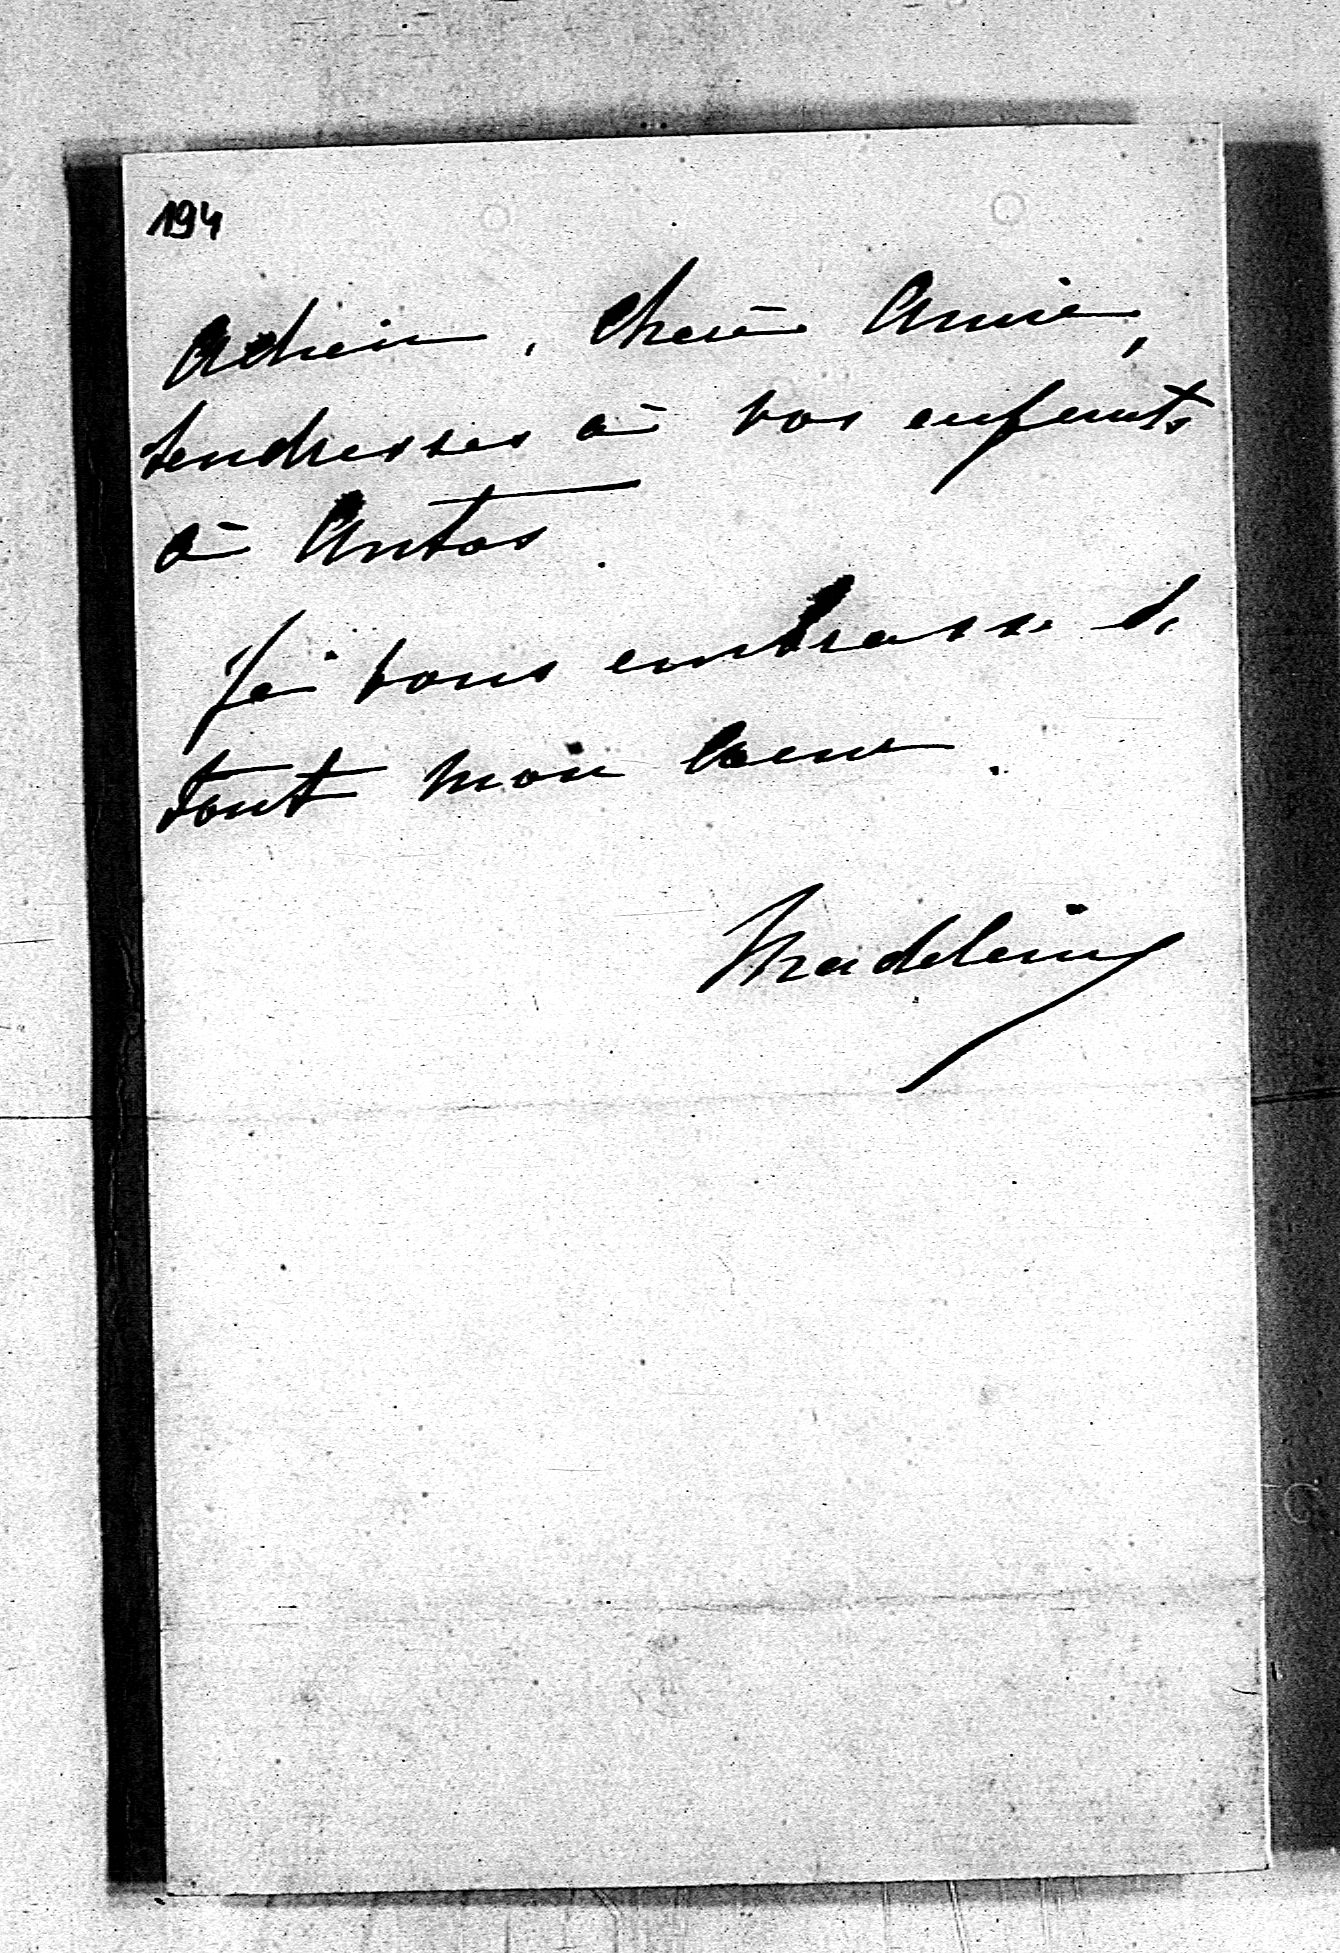 194
Adieu, chère Amie,
tendresses à vos enfants
à Antos.
Je vous embrasse de
tout mon coeur.
Madeleine